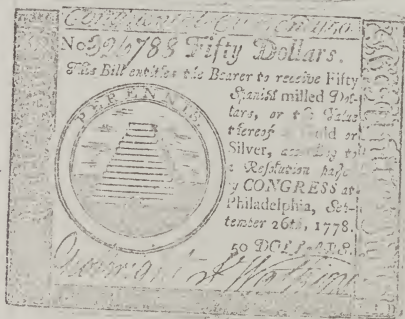 Continental Currency
No Fifty Dollars.
This Bill entitles the Bearer to receive Fifty
Spanish milled Dol-
lars, or the Value
thereof Gold or
Silver, according to
a Resolution
CONGRESS at
Philadelphia, Sep-
tember 26th, 1778.
50 DOLLARS.
PERENNIS